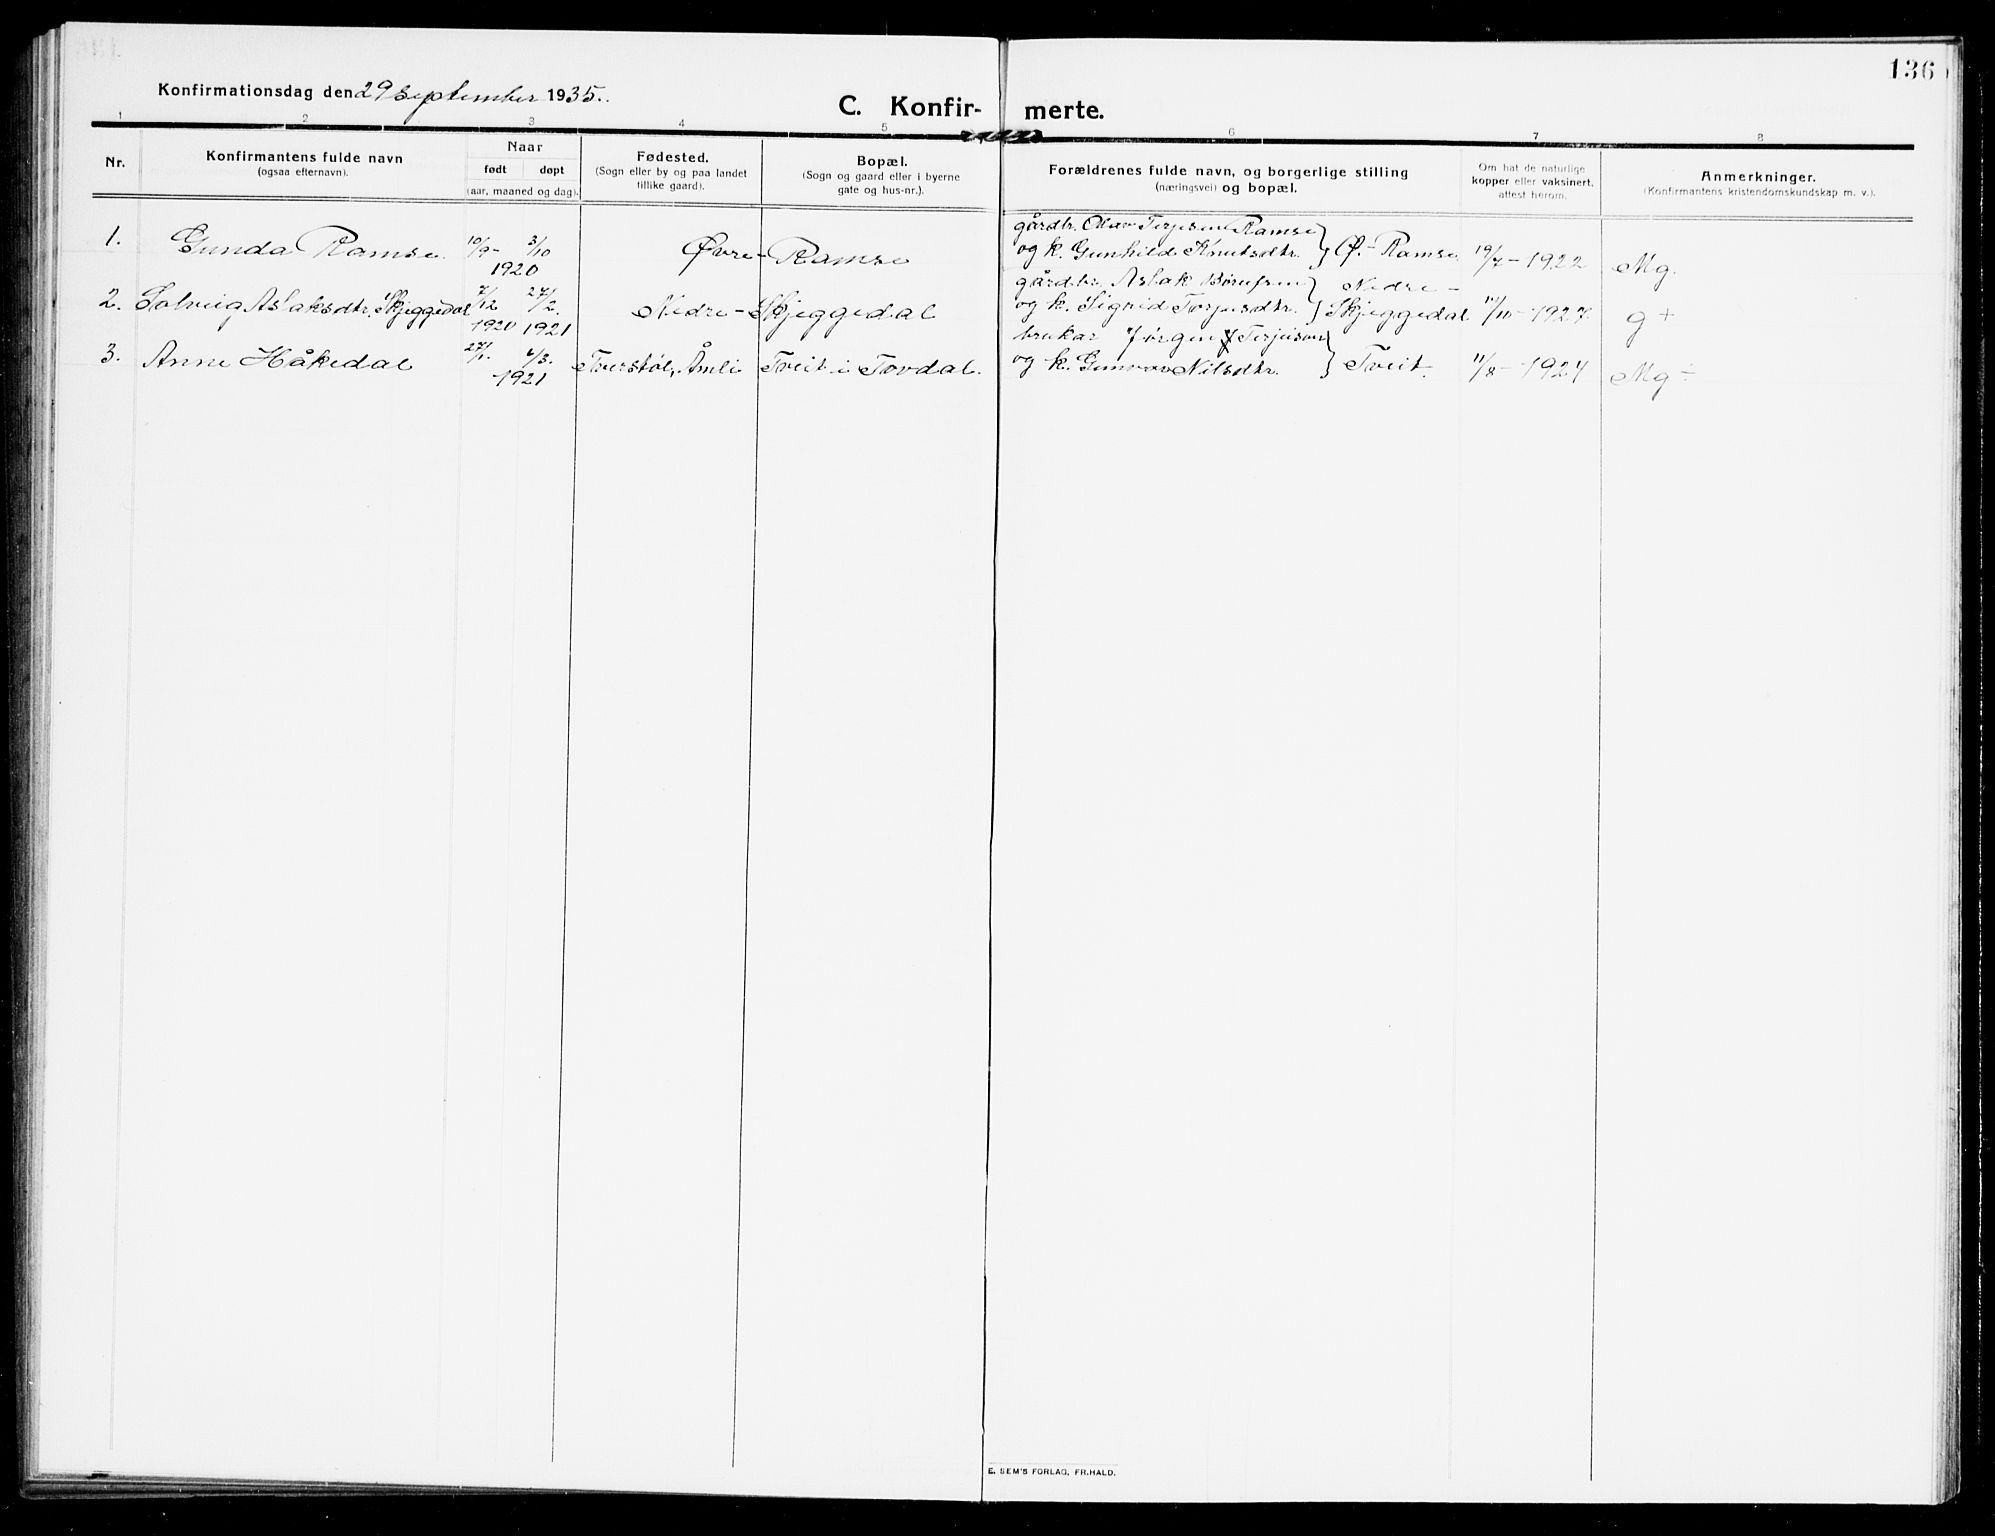 136
Konfirmationsdag den 29 september 1935.
C. Konfir- merte.
1 2 3 4 5 6 7 8
Nr.
Konfirmantens fulde navn
(ogsaa efternavn).
Naar
født døpt
(aar, maaned og dag).
Fødested.
(Sogn eller by og paa landet
tillike gaard).
Bopæl.
(Sogn og gaard eller i byerne
gate og hus-nr.).
Forældrenes fulde navn, og borgerlige stilling
(næringsvei) og bopæl.
Om hat de naturlige
kopper eller vaksinert,
attest herom.
Anmerkninger.
(Konfirmantens kristendomskundskap m. v.).
1. Gunda Ramse 10/9- 3/10
1920
Øvre - Ramse
gårdbr. Olav Terjesen Ramse
og k. Gunhild Knutsdtr. } Ø.- Ramse 19/7-1922 Mg.
2. Solveig Aslaksdtr. Skjeggedal 7/12 27/2.
1920 1921
Nedre - Skjeggedal
gårdbr. Aslak Børufsen } Nedre -
og k. Sigrid Torjusdtr. } Skjeggedal 11/10-1927. g +
3. Anne Håkedal 27/1. 6/3.
1921
Tverstøl, Åmli Tveit i Tovdal.
brukar Jørgen Terjeson
og k. Gunvor Nilsdtr. } Tveit. 11/8-1924 Mg ÷
E. SEM'S FORLAG, FR.HALD.